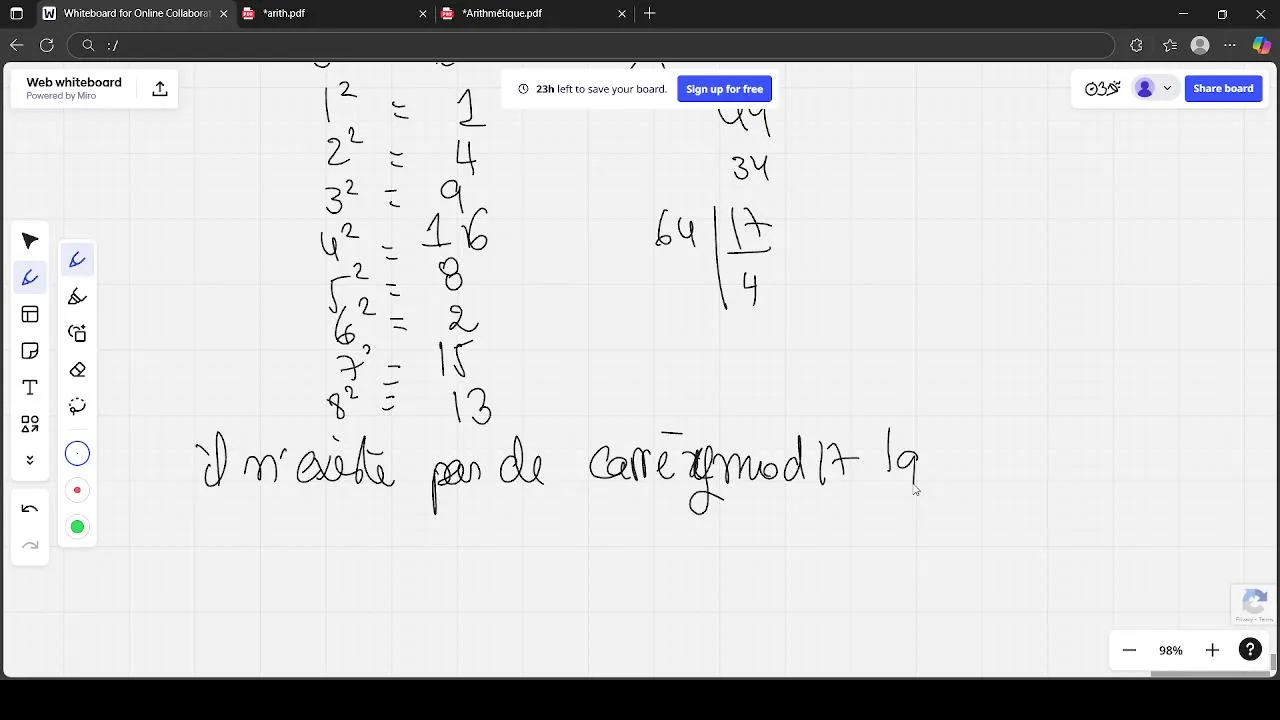 Whiteboard for Online Collaborat
*arith.pdf
*Arithmétique.pdf
:/
Web whiteboard
Powered by Miro
23h left to save your board.
Sign up for free
Share board
1² = 1
2² = 4
3² = 9
4² = 16
5² = 8
6² = 2
7² = 15
8² = 13
44
34
64 | 17
4
il n'existe pas de carré y mod 17 tq
98%
Privacy - Terms